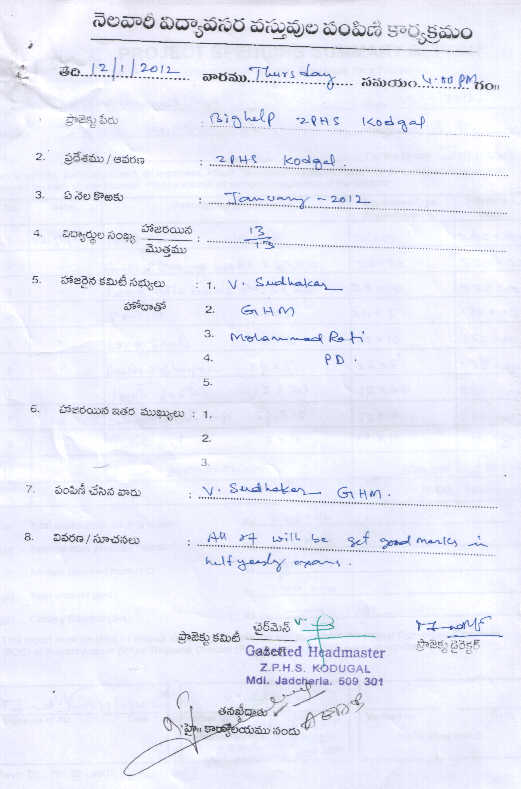 నెలవారీ విద్యావసర వస్తువుల పంపిణి కార్యక్రమం
తేది 12/1/2012 వారము Thursday సమయం 4.00 PM గం॥
ప్రాజెక్టు పేరు : Bighelp ZPHS Kodgal
2. ప్రదేశము / ఆవరణ : ZPHS Kodgal.
3. ఏ నెల కొఱకు : January - 2012
4. విద్యార్థుల సంఖ్య హాజరయిన : 13
మొత్తము 13
5. హాజరైన కమిటీ సభ్యులు : 1. V. Sudhakar
హోదాతో 2. GHM
3. Mohammad Rafi
4. PD.
5.
6. హాజరయిన ఇతర ముఖ్యులు : 1.
2.
3.
7. పంపిణీ చేసిన వారు : V. Sudhakar GHM.
8. వివరణ / సూచనలు : All of will be get good marks in
half yearly exams.
ప్రాజెక్టు కమిటీ ఛైర్మెన్
ప్రాజెక్టు డైరెక్టర్
Gazetted Headmaster
Z.P.H.S. KODUGAL
Mdl. Jadcherla. 509 301
తనఖీదారు
హై॥ కార్యాలయము నందు